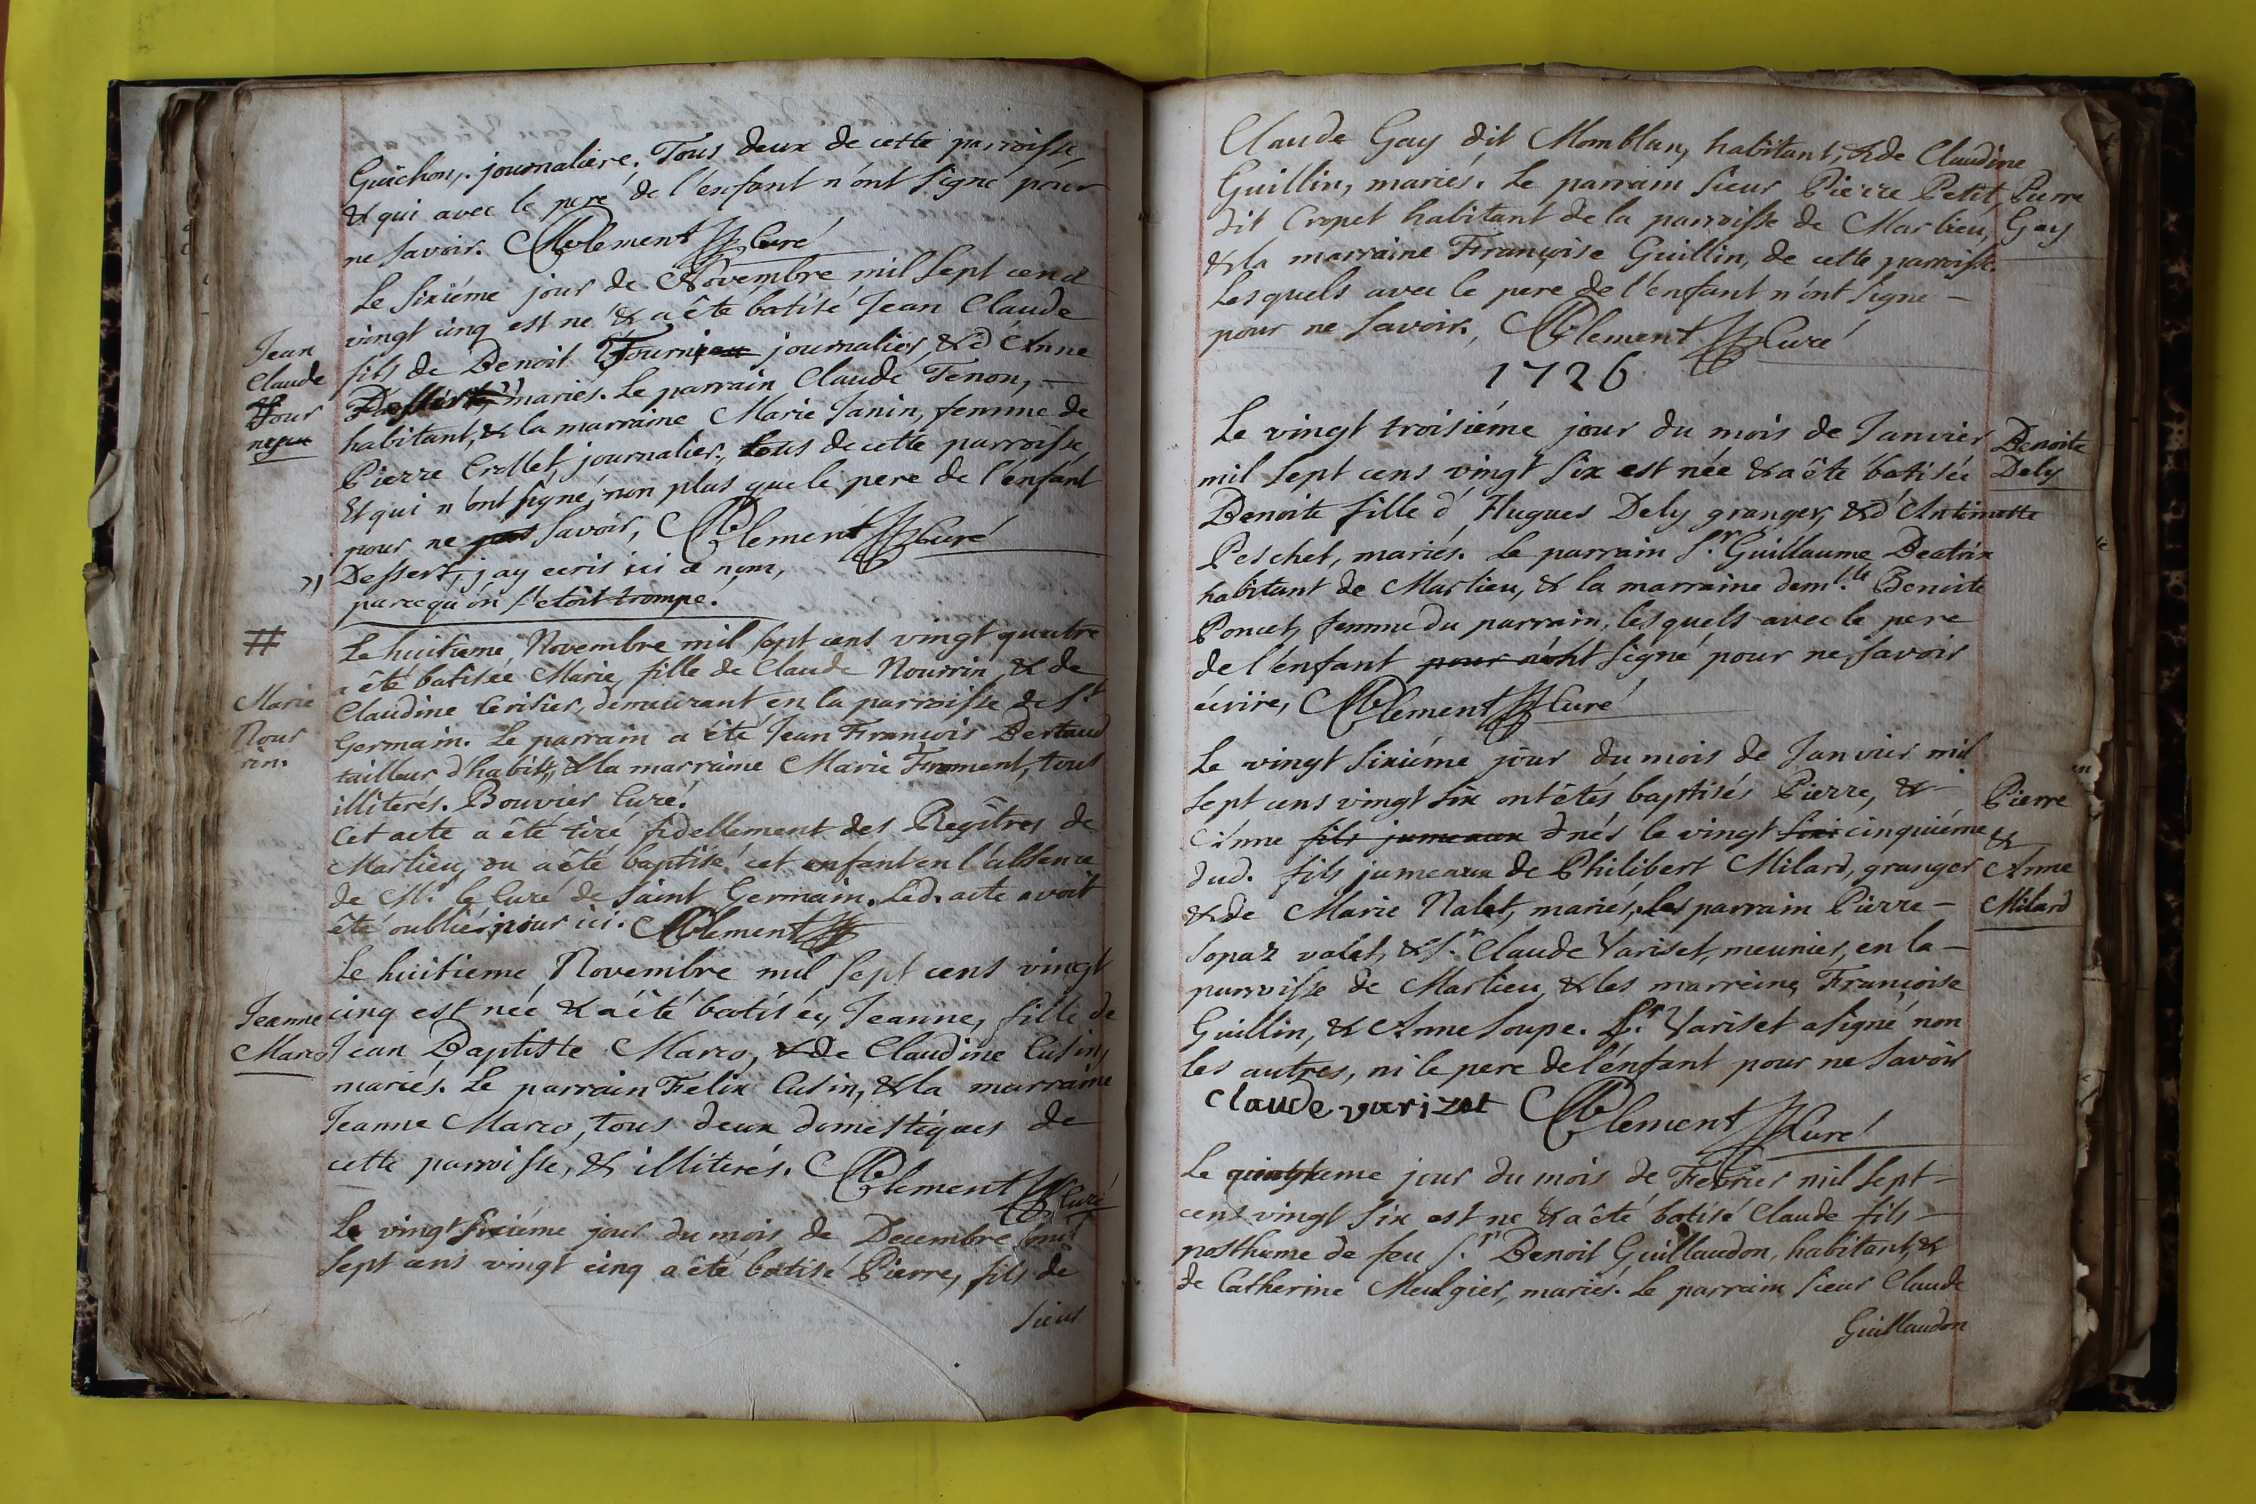 Guichon, journaliere. Tous deux de cette parroisse,
& qui avec le pere de l'enfant n'ont signé pour
ne savoir. Clement Curé
Le sixiéme jour de Novembre mil sept cent
vingt cinq est né & a êté batisé Jean Claude
Jean
Claude
Four
neau
fils de Benoit Fourneau journalier, & d'Anne
mariés. Le parrain Claude Tenon, -
habitant, & la marraine Marie Janin, femme de
Pierre Crollet, journalier, tous de cette parroisse,
Et qui n'ont signé, non plus que le pere de l'enfant
pour ne pas savoir, Clement Curé
Dessert, j'ay ecris ici ce nom,
parcequ'on s'etoit trompé.
#
Le huitieme Novembre mil sept cens vingt quatre
a êté batisée Marie, fille de Claude Nourrin, & de
Marie
Nour
rin.
Claudine Cerisier, demeurant en la parroisse de St
Germain. Le parrain a êté Jean François Bertaud
tailleur d'habits, & la marraine Marie Froment, tous
illiterés. Bouvier Curé.
Cet acte a êté tiré fidellement des Regîtres de
Marlieu, ou a êté baptisé cet enfant en l'absence
de Mr. le Curé de Saint Germain. Led. acte avoit
êté oublié pour ici. Clement
Le huitieme Novembre mil sept cens vingt
Jeanne
Marco
cinq est née & a êté batisée, Jeanne, fille de
Jean Baptiste Marco, & de Claudine Cusin,
mariés. Le parrain Felix Cusin, & la marraine
Jeanne Marco, tous deux domestiques de
cette parroisse, & illiterés. Clement Curé
Le vingt sixiéme jour du mois de Decembre mil
sept cens vingt cinq a êté batisé Pierre, fils de
sieur
Claude Gay dit Momblan, habitant, & de Claudine
Guillin, mariés. Le parrain sieur Pierre Petit
Pierre
Gay
dit Cropet habitant de la parroisse de Marlieu,
& la marraine Françoise Guillin, de cette parroisse.
Lesquels avec le pere de l'enfant n'ont signé -
pour ne savoir, Clement Curé
1726
Le vingt troisiéme jour du mois de Janvier
Benoite
Dely
mil sept cens vingt six est née & a êté batisée
Benoite fille d'Hugues Dely granger, & d'Antimette
Peschet, mariés. Le parrain Sr. Guillaume Beatrix
habitant de Marlieu, & la marraine demlle. Benoite
Poncet, femme du parrain, lesquels avec le pere
de l'enfant pour n'ont signé pour ne savoir
écrire, Clement Curé
Le vingt sixiéme jour du mois de Janvier mil
sept cens vingt six ont êtés baptisés Pierre, &
Pierre
&
Anne
Milard
Anne fils jumeaux nés le vingt cinquiéme
dud. fils jumeaux de Philibert Milard, granger
& de Marie Nalet, mariés, Les parrain Pierre -
Sopaz valet, & Sr. Claude Variset, meunier, en la -
parroisse de Marlieu, & les marreines Françoise
Guillin, & Anne Soupe. Sr. Variset a signé, non
les autres, ni le pere de l'enfant pour ne savoir
Claude varizet Clement Curé
Le jour du mois de Fevrier mil sept -
cens vingt six est né & a êté batisé Claude fils -
posthume de feu Sr. Benoit Guillaudon, habitant, &
de Catherine Meulgier, mariés. Le parrain sieur Claude
Guillaudon